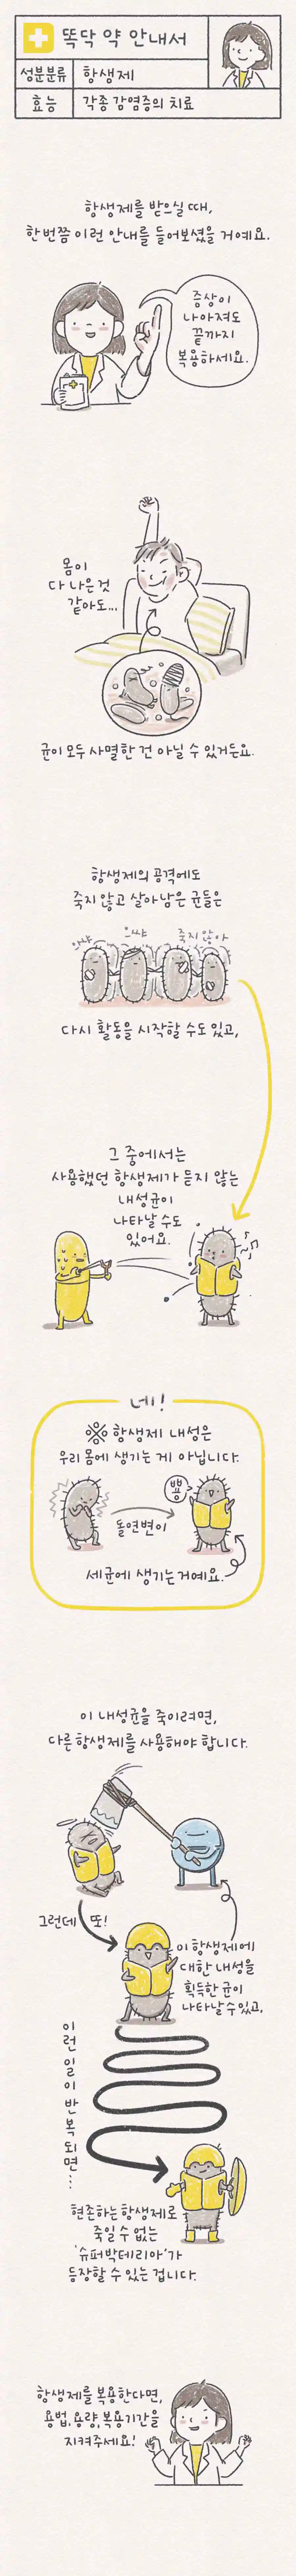 똑닥 약 안내서
성분분류 항생제
효능 각종 감염증의 치료
항생제를 받으실 때,
한번쯤 이런 안내를 들어보셨을 거예요.
증상이
나아져도
끝까지
복용하세요.
몸이
다 나은 것
같아도...
균이 모두 사멸한 건 아닐 수 있거든요.
항생제의 공격에도
죽지 않고 살아남은 균들은
으쌰
으쌰
죽지 않아
다시 활동을 시작할 수도 있고,
그 중에서는
사용했던 항생제가 듣지 않는
내성균이
나타날 수도
있어요.
네!
※ 항생제 내성은
우리 몸에 생기는 게 아닙니다.
뿅
돌연변이
세균에 생기는 거예요.
이 내성균을 죽이려면,
다른 항생제를 사용해야 합니다.
그런데 또!
이 항생제에
대한 내성을
획득한 균이
나타날 수 있고,
이런 일이 반복되면...
현존하는 항생제로
죽일 수 없는
'슈퍼박테리아'가
등장할 수 있는 겁니다.
항생제를 복용한다면,
용법, 용량, 복용기간을
지켜주세요!